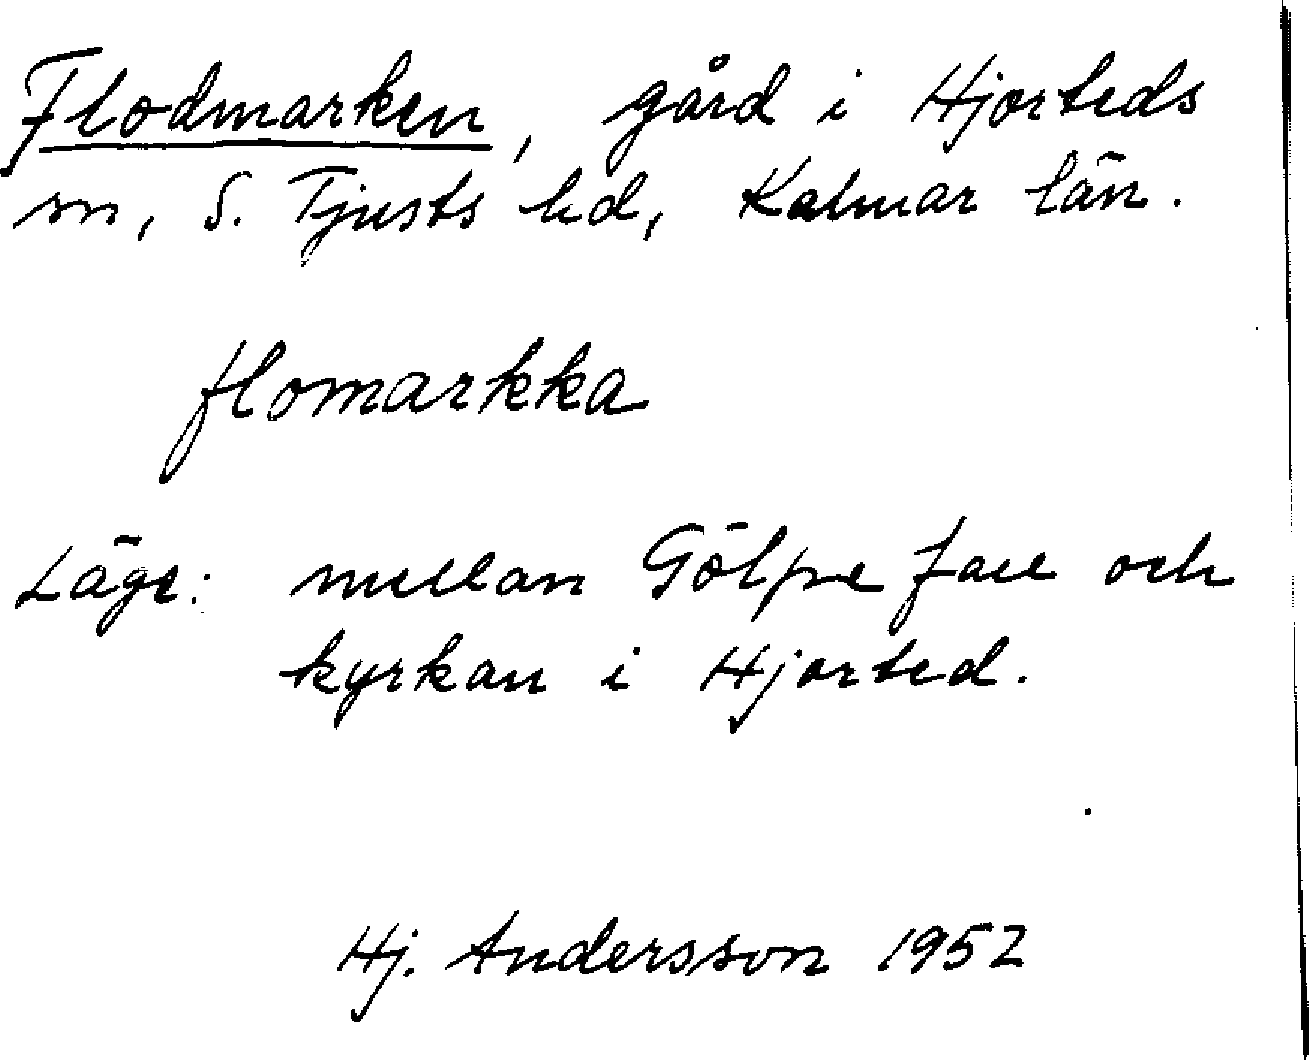 Flodmarken, gård i Hjorteds
sn, S. Tjusts hd, Kalmar län.
flomarkka
Läge: mellan Gölpe fall och
kyrkan i Hjorted.
Hj. Andersson 1952